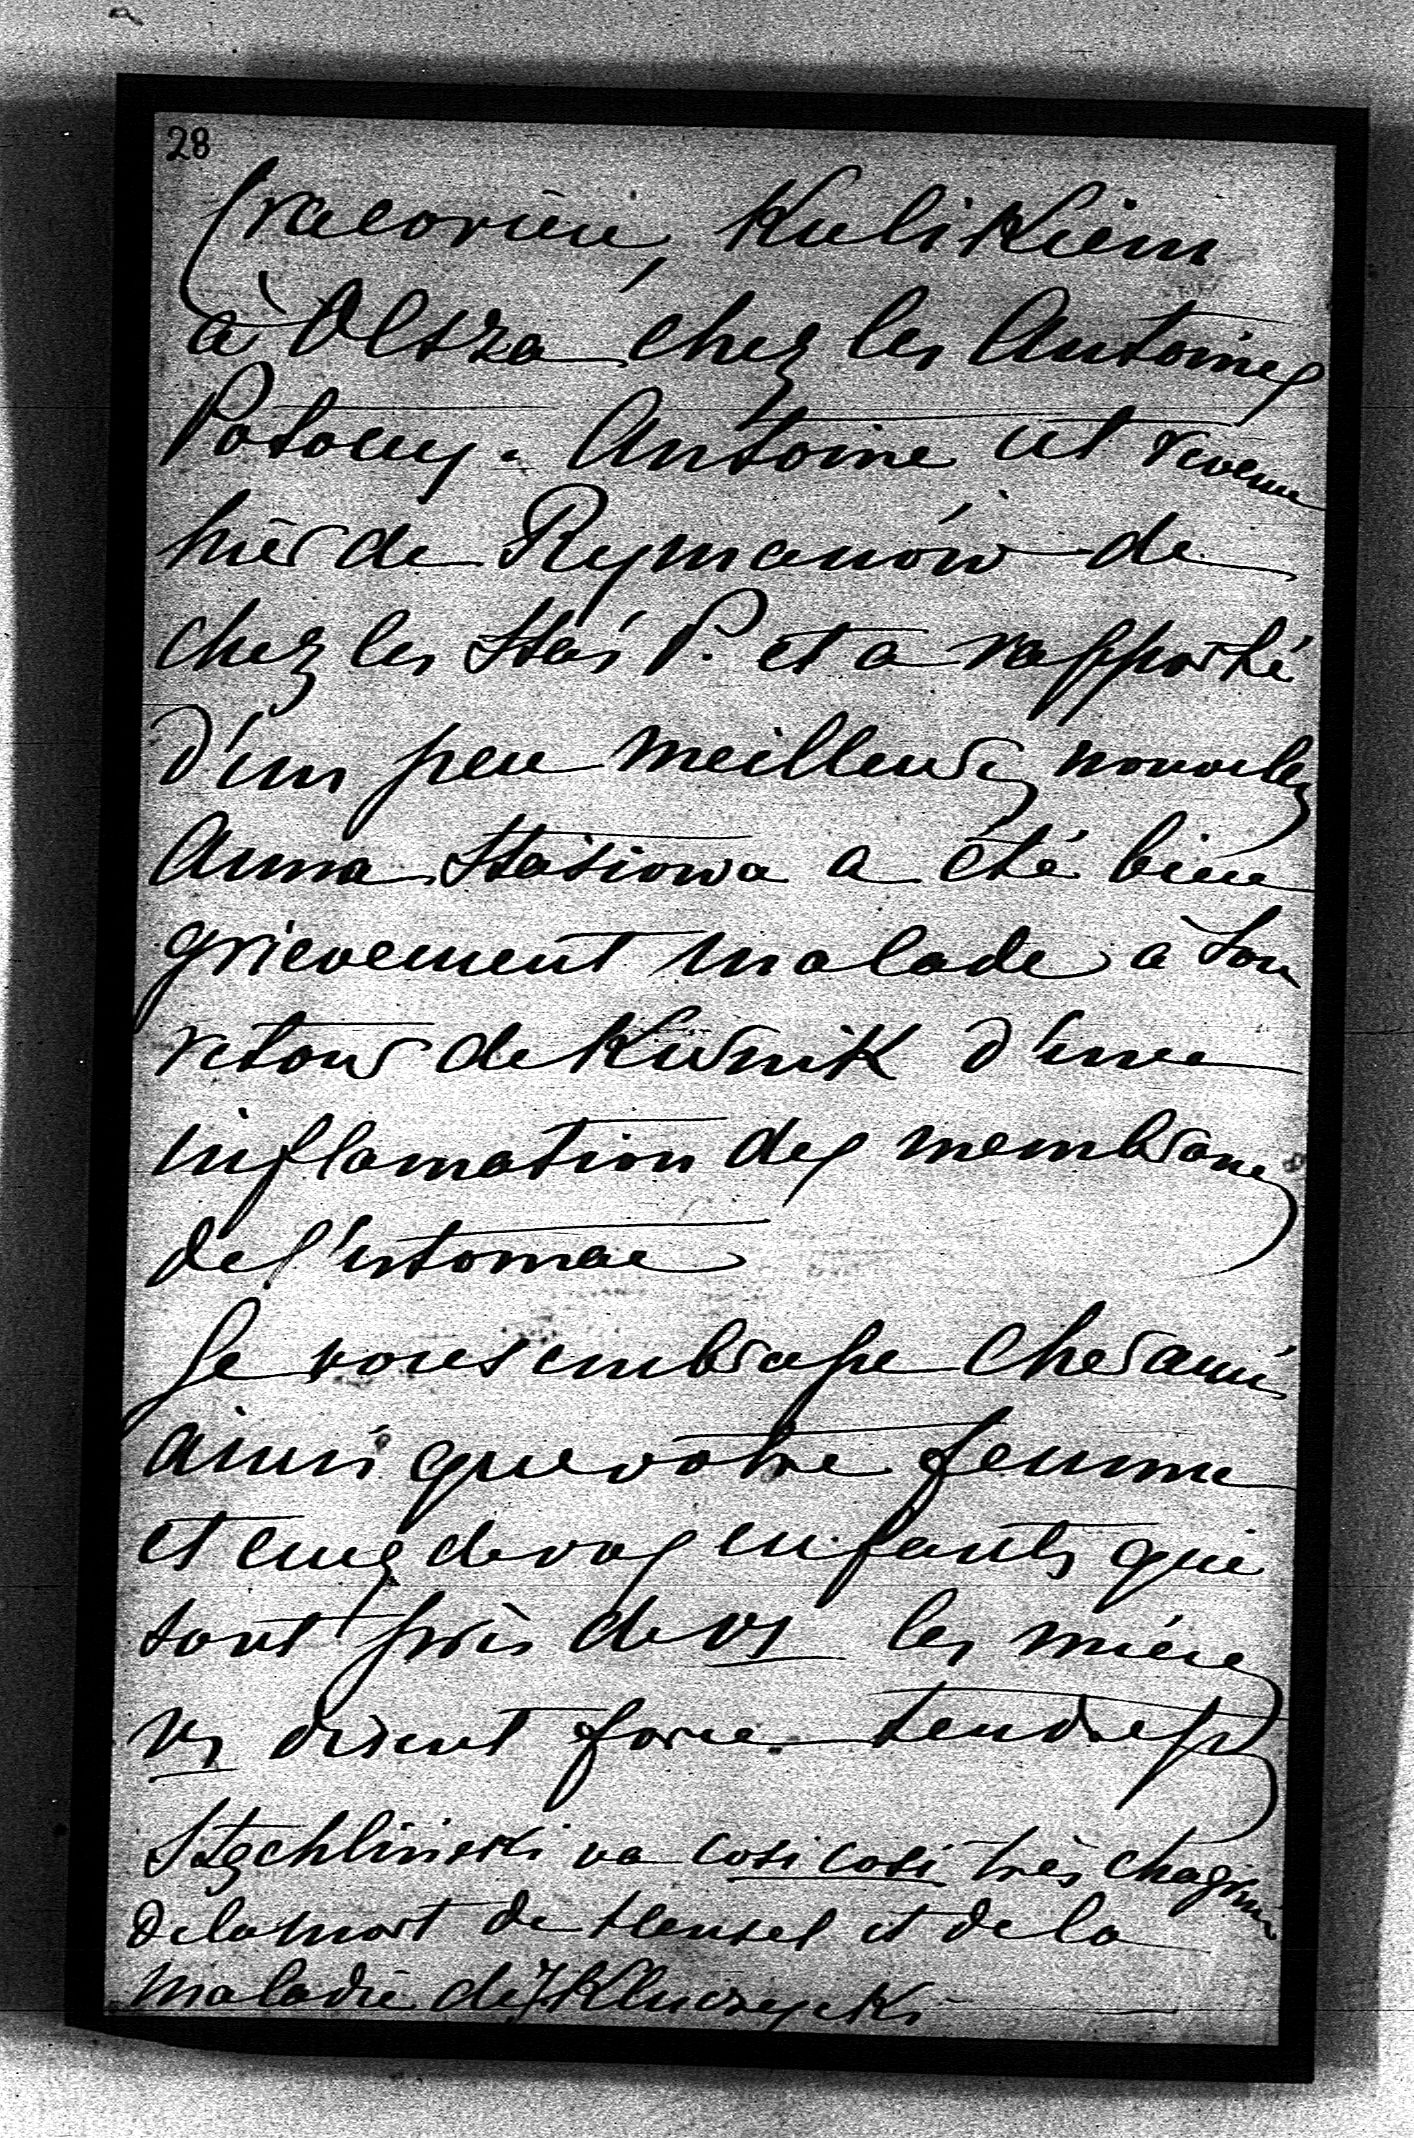 28
Cracovien, Kulikiem
à Olsza chez les Antoines
Potocey. Antoine est revenu
hier de Rymanów de
chez les Staś P. et a rapporté
d'un peu meilleures nouvelles
Anna Stasiowa a été bien
grievement malade à son
retour de Kurnik d'une
inflamation des membranes
de l'estomac
Je vous embrasse cher ami
ainsi que votre femme
et ceux de vos enfants qui
sont près de vs les miens
vs disent force tendresses
Stechlinski va cosi cosi très chagriné
de la mort de Hensel et de la
maladie de Kluczycki